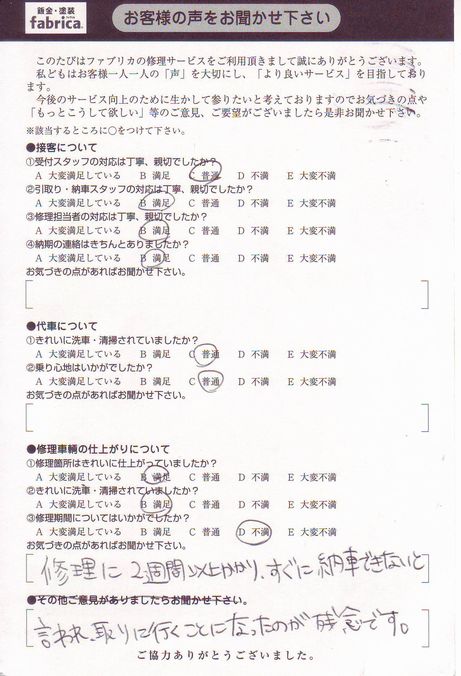 鈑金・塗装
fabrica.
お客様の声をお聞かせ下さい
このたびはファブリカの修理サービスをご利用頂きまして誠にありがとうございます。
私どもはお客様一人一人の「声」を大切にし、「より良いサービス」を目指しており
ます。
今後のサービス向上のために生かして参りたいと考えておりますのでお気づきの点や
「もっとこうして欲しい」等のご意見、ご要望がございましたら是非お聞かせ下さい。
※該当するところに○をつけて下さい。
●接客について
①受付スタッフの対応は丁寧、親切でしたか?
A 大変満足している B 満足 C 普通 D 不満 E 大変不満
②引取り・納車スタッフの対応は丁寧、親切でしたか?
A 大変満足している B 満足 C 普通 D 不満 E 大変不満
③修理担当者の対応は丁寧、親切でしたか?
A 大変満足している B 満足 C 普通 D 不満 E 大変不満
④納期の連絡はきちんとありましたか?
A 大変満足している B 満足 C 普通 D 不満 E 大変不満
お気づきの点があればお聞かせ下さい。
●代車について
①きれいに洗車・清掃されていましたか?
A 大変満足している B 満足 C 普通 D 不満 E 大変不満
②乗り心地はいかがでしたか?
A 大変満足している B 満足 C 普通 D 不満 E 大変不満
お気づきの点があればお聞かせ下さい。
●修理車輌の仕上がりについて
①修理箇所はきれいに仕上がっていましたか?
A 大変満足している B 満足 C 普通 D 不満 E 大変不満
②きれいに洗車・清掃されていましたか?
A 大変満足している B 満足 C 普通 D 不満 E 大変不満
③修理期間についてはいかがでしたか?
A 大変満足している B 満足 C 普通 D 不満 E 大変不満
お気づきの点があればお聞かせ下さい。
修理に2週間以上かかり、すぐに納車できないと
●その他ご意見がありましたらお聞かせ下さい。
言われ、取りに行くことになったのが残念です。
ご協力ありがとうございました。